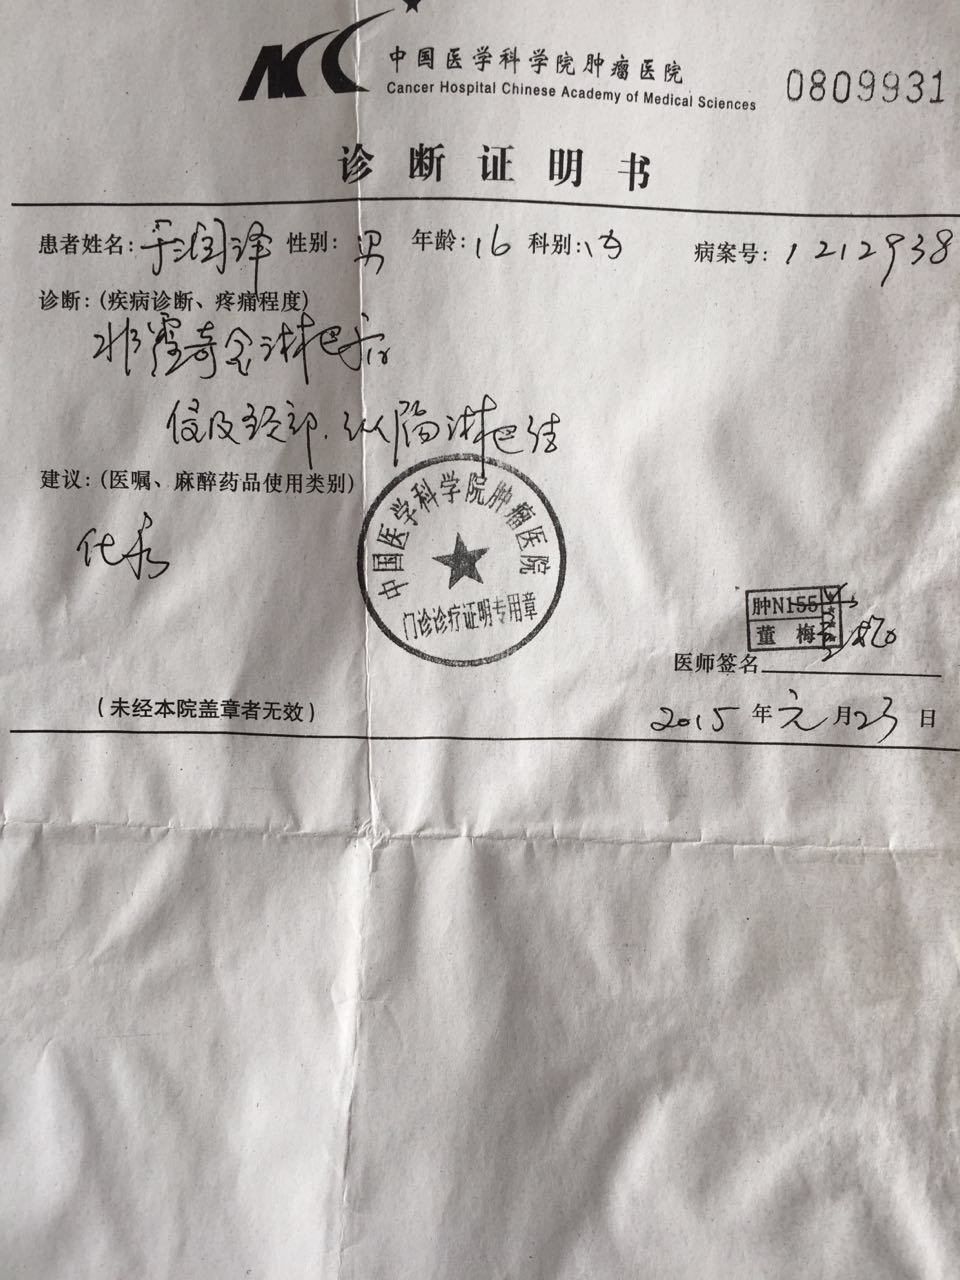 中国医学科学院肿瘤医院
Cancer Hospital Chinese Academy of Medical Sciences
0809931
诊断证明书
患者姓名: 于润泽 性别: 男 年龄: 16 科别: 内 病案号: 1212938
诊断: (疾病诊断、疼痛程度)
非霍奇金淋巴瘤
侵及颈部、纵隔淋巴结
建议: (医嘱、麻醉药品使用类别)
化疗
中国医学科学院肿瘤医院
门诊诊疗证明专用章
肿N155
董梅
医师签名
(未经本院盖章者无效)
2015 年 元 月 23 日